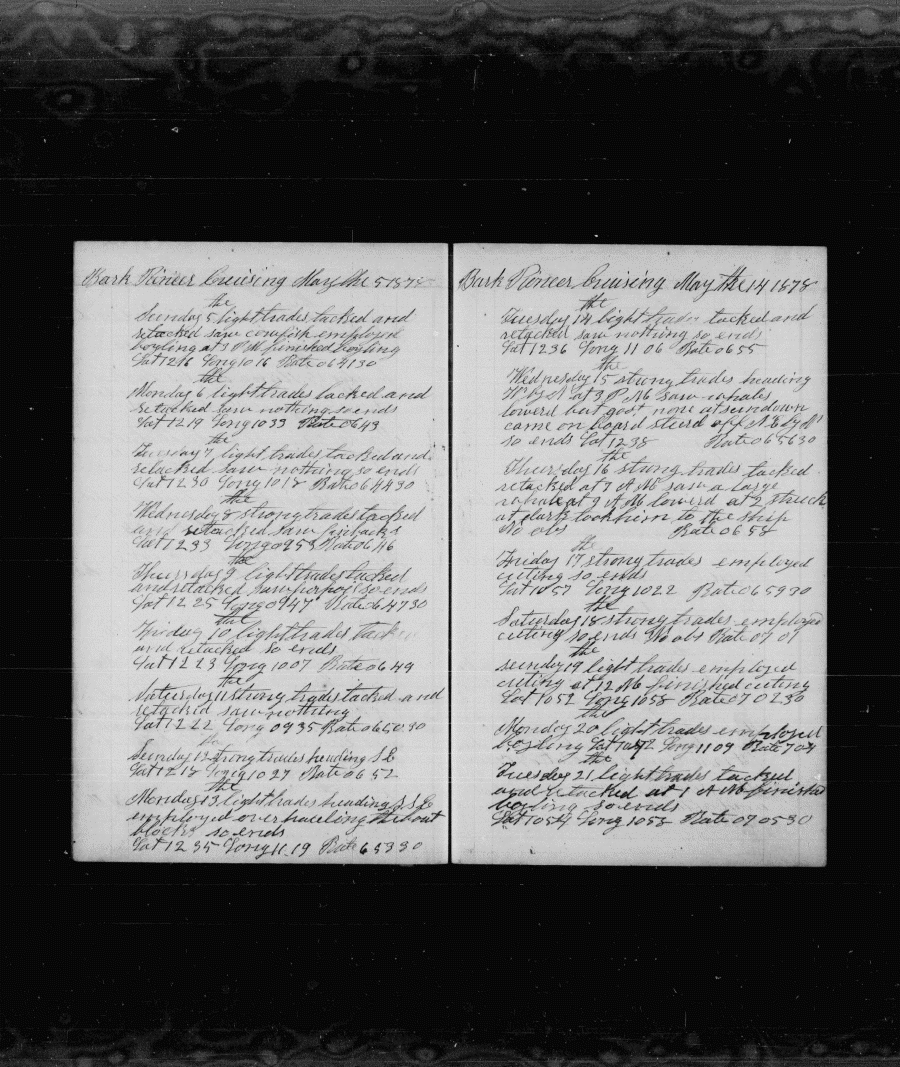 Bark Pioneer Cruising May the 5 1878
the
Sunday 5 light trades tacked and
retacked saw cowfish employed
boyling at 3 P M finished boyling
Lat 12 16 Long 10 16 Rate 0 6 41 30
the
Monday 6 light trades tacked and
retacked saw nothing so ends
Lat 12 19 Long 10 33 Rate 0 6 43
the
Tuesday 7 light trades tacked and
retacked saw nothing so ends
Lat 12 30 Long 10 18 Rate 0 6 44 30
the
Wednesday 8 strong trades tacked
and retacked saw finbacks
Lat 12 33 Long 09 53 Rate 0 6 46
the
Thursday 9 light trades tacked
and retacked saw porpoys so ends
Lat 12 25 Long 09 47 Rate 0 6 47 30
the
Friday 10 light trades tack
and retacked so ends
Lat 12 23 Long 10 07 Rate 0 6 49
the
Saturday 11 strong trades tacked and
retacked saw nothing
Lat 12 22 Long 09 35 Rate 0 6 50 30
the
Sunday 12 strong trades heading S E
Lat 12 18 Long 10 27 Rate 0 6 52
the
Monday 13 light trades heading S S E
employed overhauling the boat
blocks so ends
Lat 12 35 Long 11 19 Rate 6 53 30
Bark Pioneer Cruising May the 14 1878
the
Tuesday 14 light trades tacked and
retacked saw nothing so ends
Lat 12 36 Long 11 06 Rate 0 6 55
the
Wednesday 15 strong trades heading
W By N at 3 P M saw whales
lowerd but got none at sundown
came on board steerd off N E by N
so ends Lat 12 38 Rate 0 6 56 30
the
Thursday 16 strong trades tacked
retacked at 7 A M saw a large
whale at 9 A M lowerd at 2 struck
at dark took him to the ship
No obs Rate 0 6 58
the
Friday 17 strong trades employed
cuting so ends
Lat 10 57 Long 10 22 Rate 0 6 59 30
the
Saturday 18 strong trades employed
cuting so ends No obs Rate 07 01
the
Sunday 19 light trades employed
cuting at 12 M finished cuting
Lat 10 52 Long 10 58 Rate 07 0 2 30
the
Monday 20 light trades employed
boyling Lat 10 42 Long 11 09 Rate 7 04
the
Tuesday 21 light trades tacked
and retacked at 1 A M finished
boyling so ends
Lat 10 54 Long 10 58 Rate 07 05 30